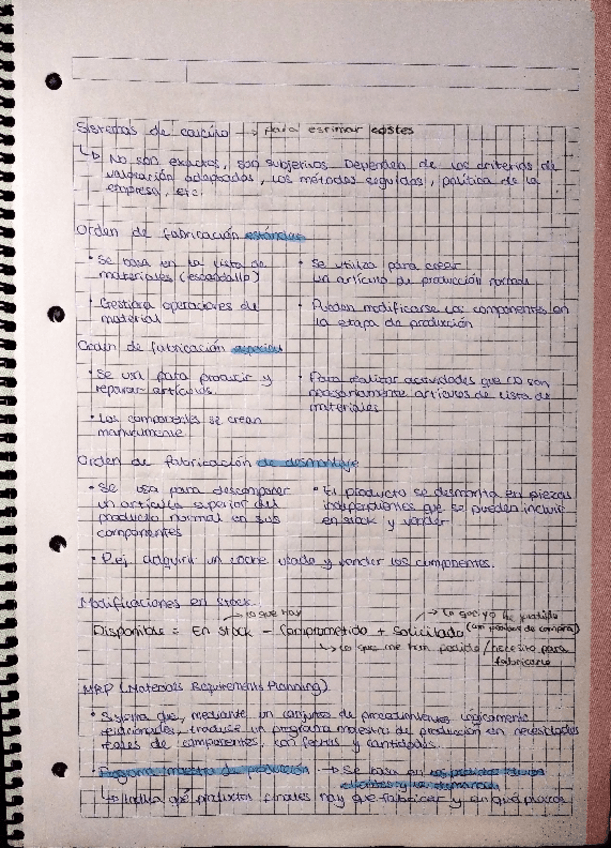 Sistemas de cálculo → para estimar costes
↳ No son exactos, son subjetivos. Dependen de los criterios de
valoración adoptados, los métodos seguidos, política de la
empresa, etc.
Orden de fabricación estándar
• Se basa en la lista de
materiales (escandallo)
• Gestiona operaciones de
material
• Se utiliza para crear
un artículo de producción normal
• Pueden modificarse los componentes en
la etapa de producción
Orden de fabricación especial
• Se usa para producir y
reparar artículos.
• Los componentes se crean
manualmente
• Para realizar actividades que no son
necesariamente artículos de lista de
materiales
Orden de fabricación de desmontaje
• Se usa para descomponer
un artículo superior del
producto normal en sus
componentes
• El producto se desmonta en piezas
independientes que se pueden incluir
en stock y vender
• P.ej. adquirir un coche usado y vender los componentes.
Modificaciones en stock
→ lo que hay
→ Lo que yo he pedido
(un pedido de compra)
Disponible = En stock - Comprometido + Solicitado
↳ lo que me han pedido / necesito para
fabricarlo
MRP (Materials Requirements Planning)
• Sistema que, mediante un conjunto de procedimientos lógicamente
relacionados, traduce un programa maestro de producción en necesidades
reales de componentes, con fechas y cantidades.
• Programa maestro de producción → Se basa en los pedidos de los
clientes y la demanda
↳ Indica qué productos finales hay que fabricar y en qué plazos